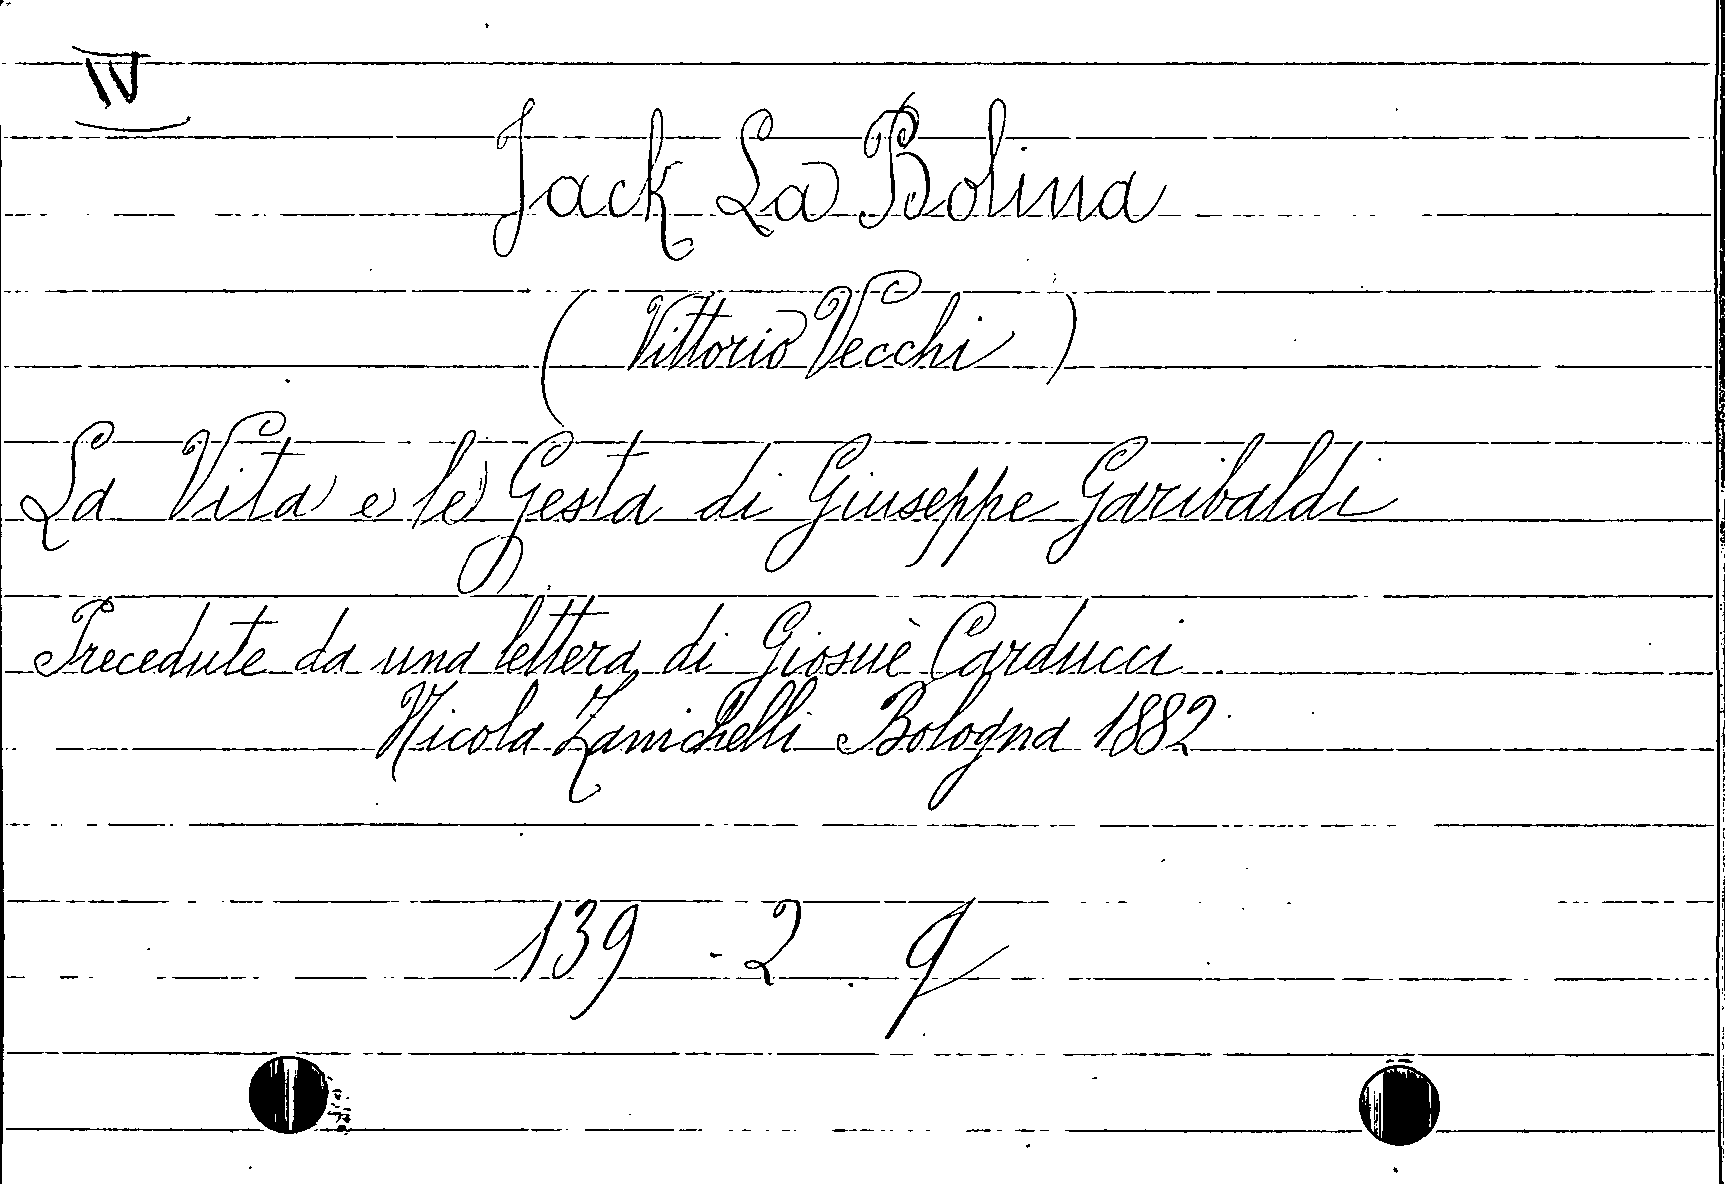 IV
Jack La Bolina
(Vittorio Vecchi)
La Vita e le Gesta di Giuseppe Garibaldi
Precedute da una lettera di Giosuè Carducci
Nicola Zanichelli Bologna 1882
139 - 2 q